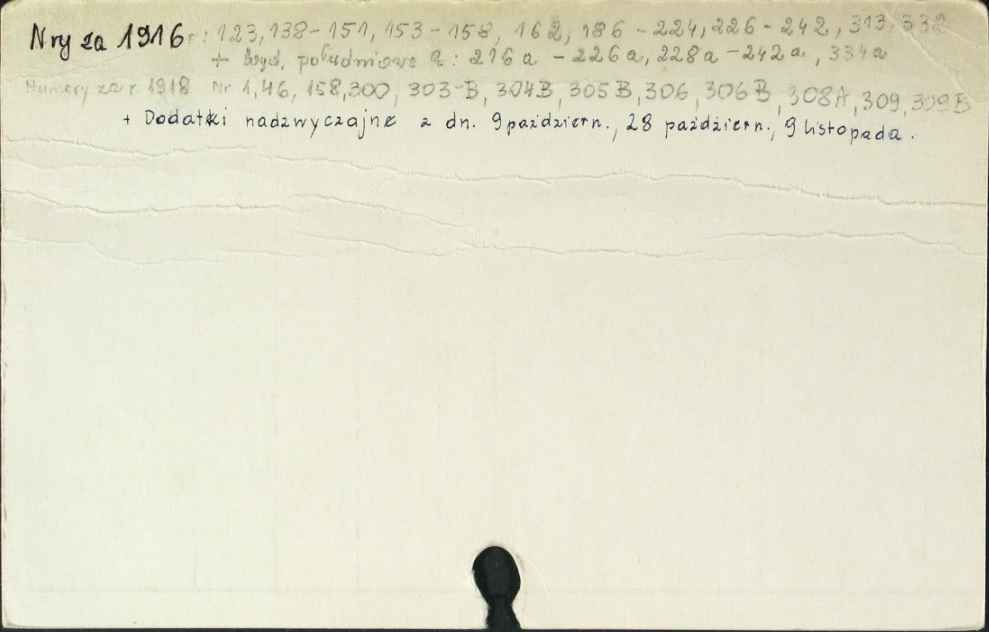 Nry za 1916 r: 123, 138-151, 153-158, 162, 186-224, 226-242, 313, 332
+ wyd. południowe a: 216a - 226a, 228a - 242a, 334a
Numery za r 1918 Nr 1, 46, 158, 300, 303-B, 304B, 305B, 306, 306B, 308A, 309, 309B
+ Dodatki nadzwyczajne z dn. 9 październ., 28 październ., 9 listopada.